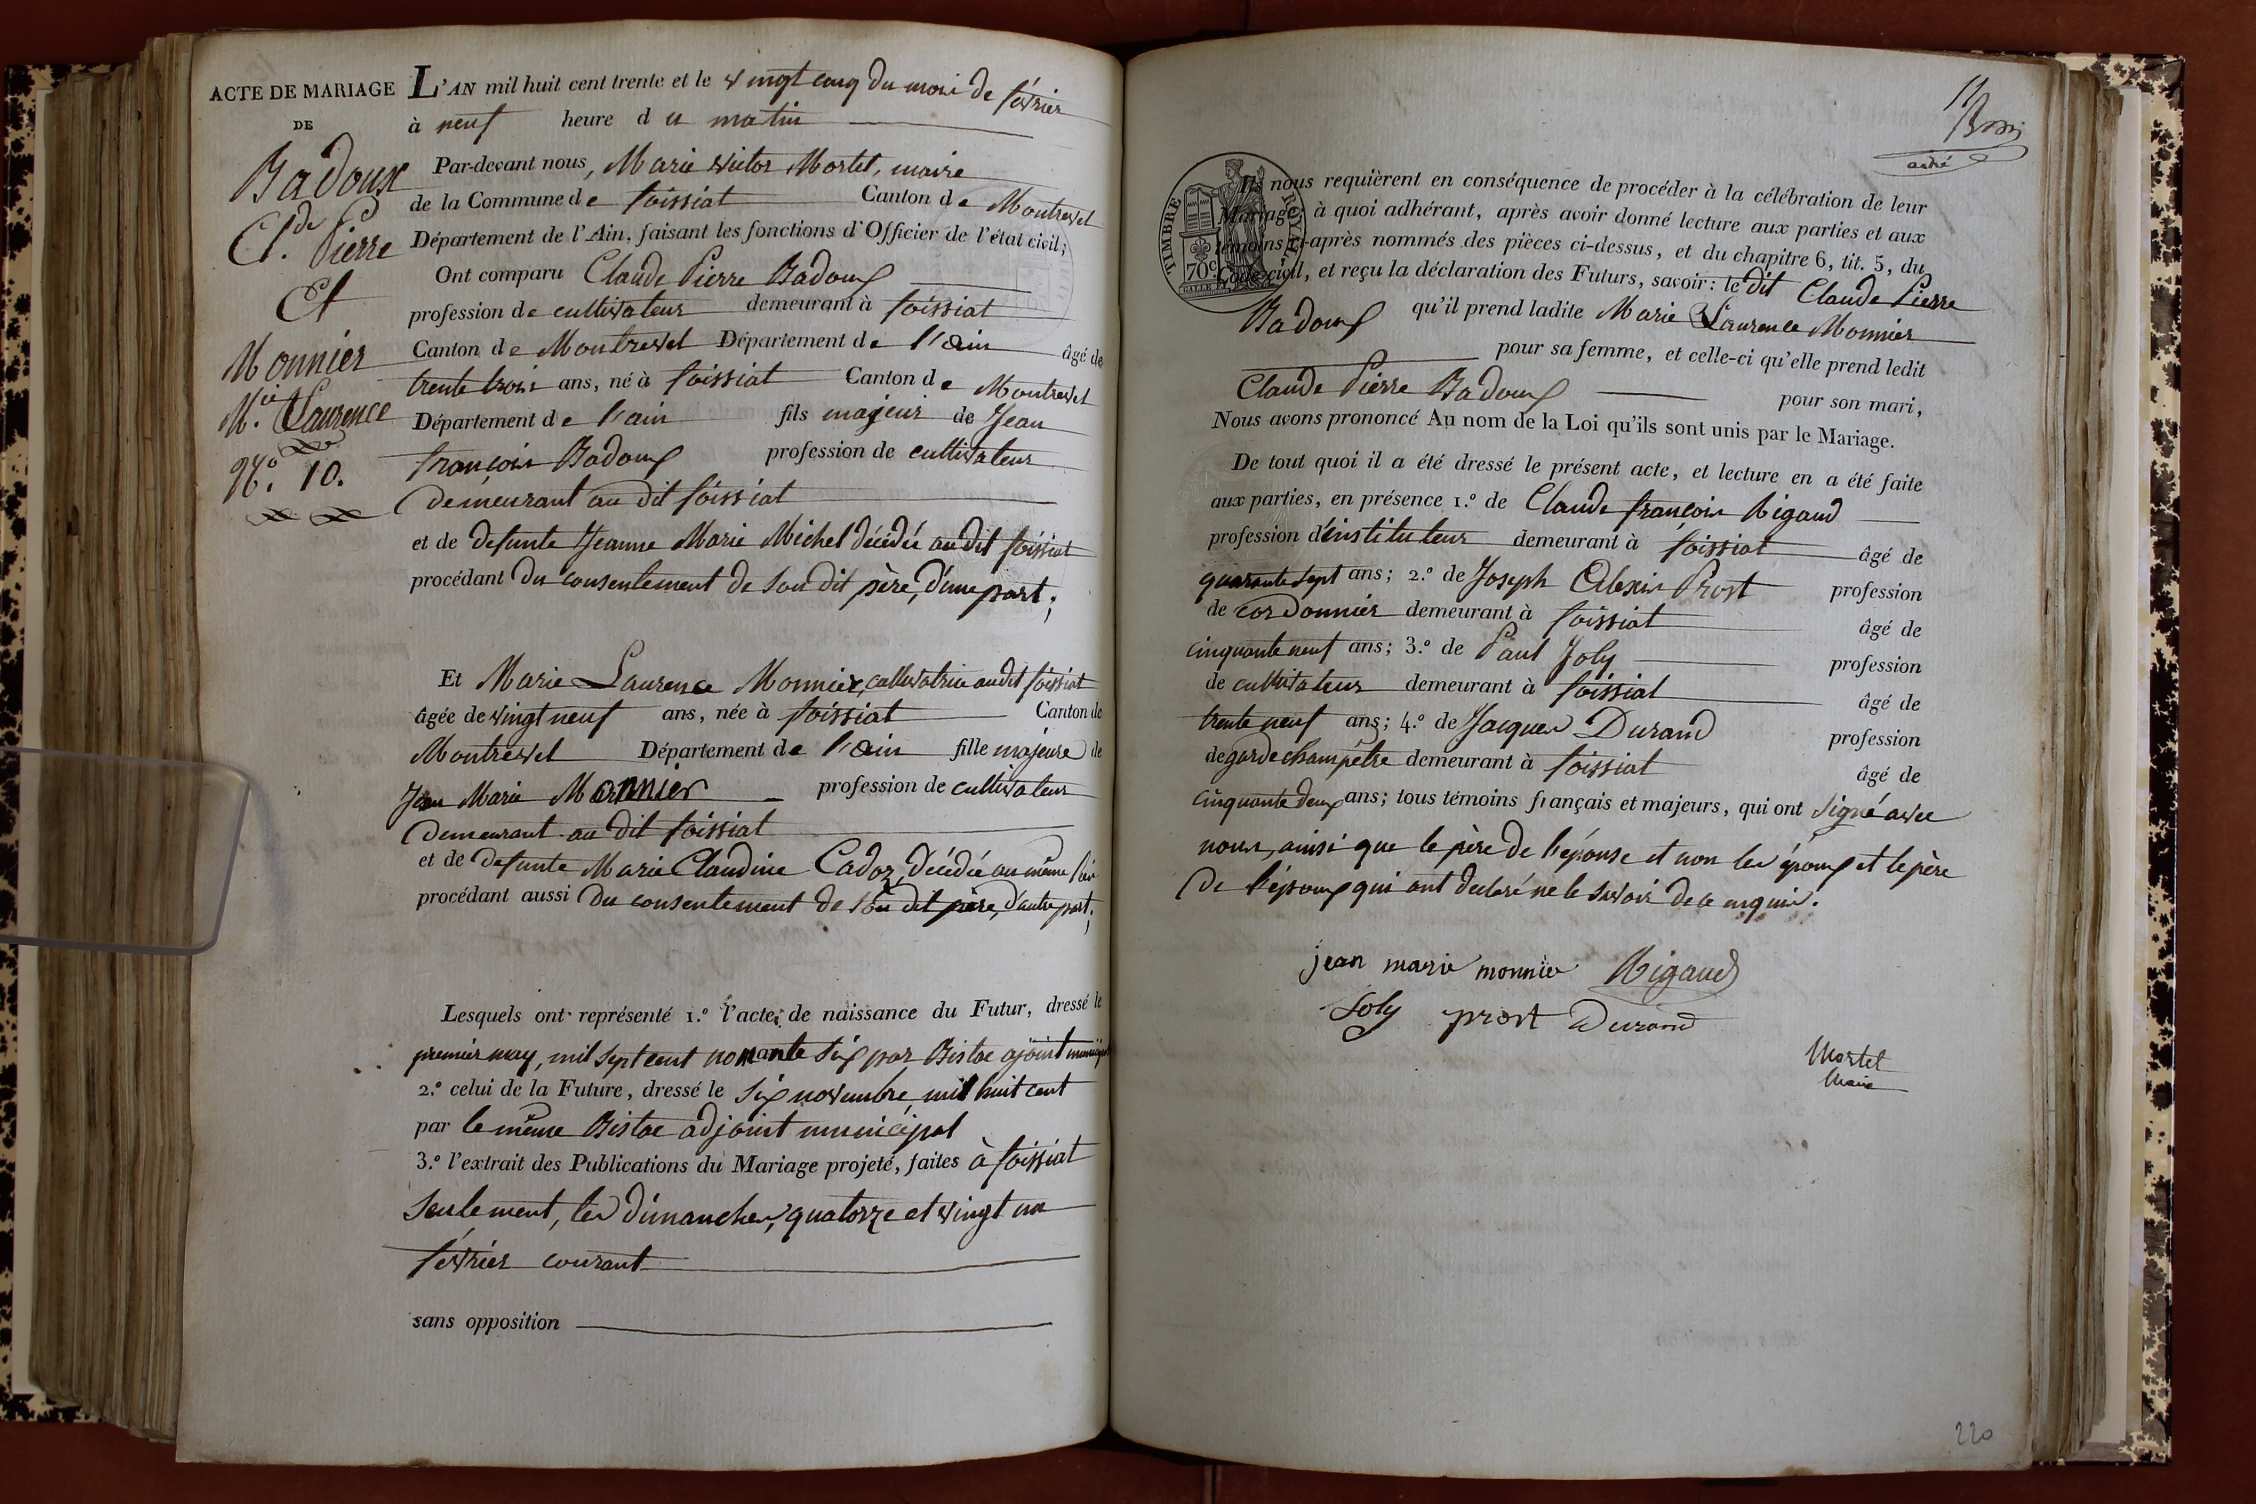 ACTE DE MARIAGE
DE
Badoux
Cl.de Pierre
Et
Monnier
M.ie Laurence
N.o 10.
L'AN mil huit cent trente et le vingt cinq du mois de février
à neuf heure d u matin
Par-devant nous, Marie victor Mortel, maire
de la Commune de foissiat Canton de Montrevel
Département de l'Ain, faisant les fonctions d'Officier de l'état civil;
Ont comparu Claude Pierre Badoux
profession de cultivateur demeurant à foissiat
Canton de Montrevel Département de l'ain âgé de
trente trois ans, né à foissiat Canton de Montrevel
Département de l'ain fils majeur de Jean
françois Badoux profession de cultivateur
demeurant au dit foissiat
et de defunte Jeanne Marie Michel décédée au dit foissiat
procédant du consentement de son dit père, d'une part;
Et Marie Laurence Monnier, cultivatrice au dit foissiat
âgée de vingt neuf ans, née à foissiat Canton de
Montrevel Département de l'ain fille majeure de
Jean Marie Monnier profession de cultivateur
demeurant au dit foissiat
et de defunte Marie Claudine Cadoz, décédée au même lieu
procédant aussi du consentement de son dit père, d'autre part;
Lesquels ont représenté 1.º l'acte de naissance du Futur, dressé le
premier may, mil sept cent nonante six par Bistoe ajoint municipal
2.º celui de la Future, dressé le six novembre, mil huit cent
par le même Bistoe adjoint municipal
3.º l'extrait des Publications du Mariage projeté, faites à foissiat
seulement, les dimanches, quatorze et vingt un
février courant
sans opposition
TIMBRE ROYAL
70 c
andré
Ils nous requièrent en conséquence de procéder à la célébration de leur
Mariage; à quoi adhérant, après avoir donné lecture aux parties et aux
témoins ci-après nommés des pièces ci-dessus, et du chapitre 6, tit. 5, du
Code civil, et reçu la déclaration des Futurs, savoir: le dit Claude Pierre
Badoux qu'il prend ladite Marie Laurence Monnier
pour sa femme, et celle-ci qu'elle prend ledit
Claude Pierre Badoux pour son mari,
Nous avons prononcé Au nom de la Loi qu'ils sont unis par le Mariage.
De tout quoi il a été dressé le présent acte, et lecture en a été faite
aux parties, en présence 1.º de Claude françois Rigaud
profession d'instituteur demeurant à foissiat âgé de
quarante sept ans; 2.º de Joseph Alexis Prost profession
de cordonnier demeurant à foissiat âgé de
cinquante neuf ans; 3.º de Paul Joly profession
de cultivateur demeurant à foissiat âgé de
trente neuf ans; 4.º de Jacques Durand profession
de garde champêtre demeurant à foissiat âgé de
cinquante deux ans; tous témoins français et majeurs, qui ont signé avec
nous, ainsi que le père de l'épouse et non les époux et le père
de l'époux qui ont declaré ne le savoir de ce enquis.
jean marie monnier Rigaud
Joly prost Durand
Mortel
Maire
220